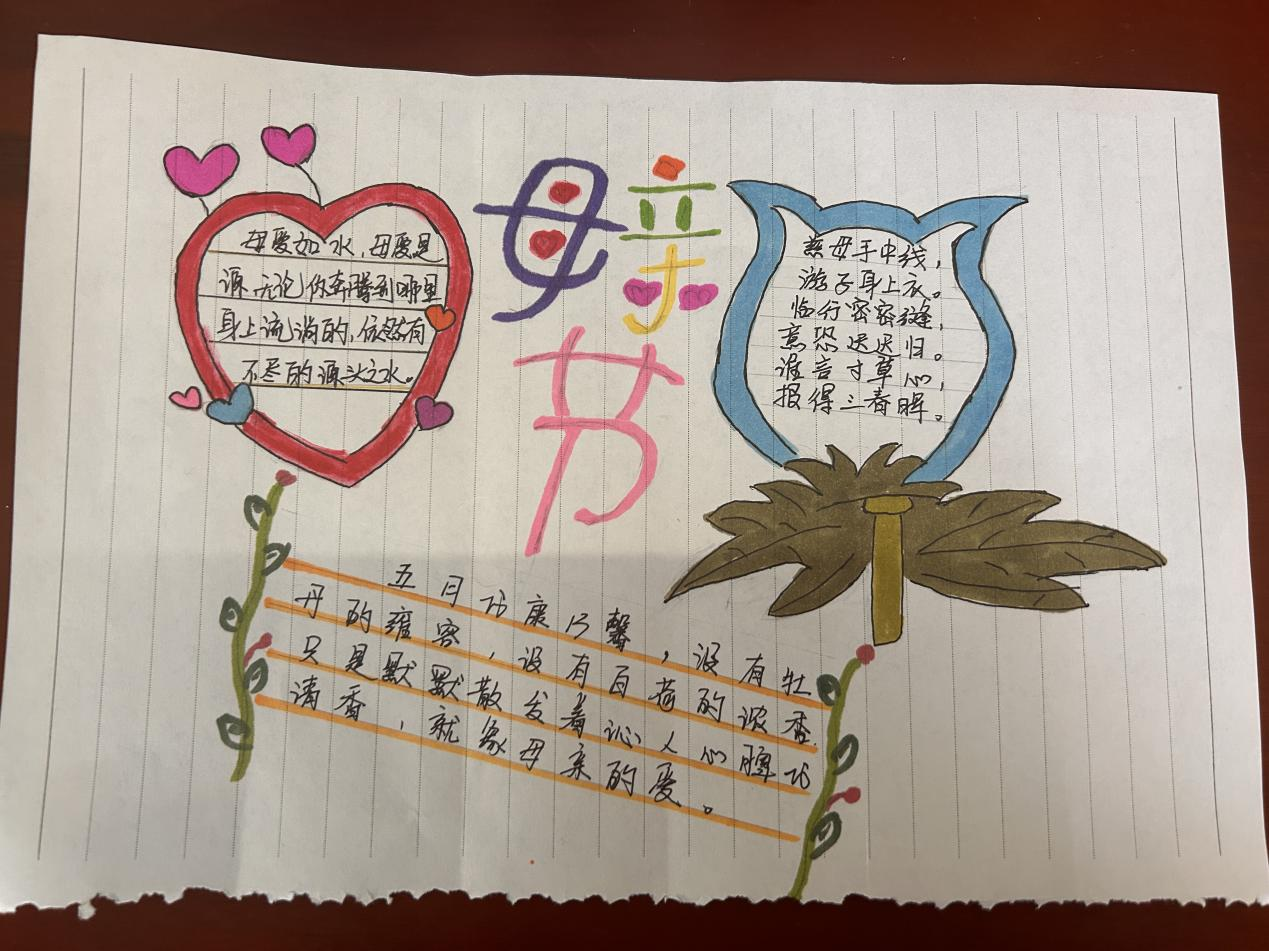 母亲
节
母爱如水，母爱是
源，无论你奔腾到哪里
身上流淌的，依然有
不尽的源头之水。
慈母手中线，
游子身上衣。
临行密密缝，
意恐迟迟归。
谁言寸草心，
报得三春晖。
五月的康乃馨，没有牡
丹的雍容，没有百荷的浓香，
只是默默散发着沁人心脾的
清香，就象母亲的爱。